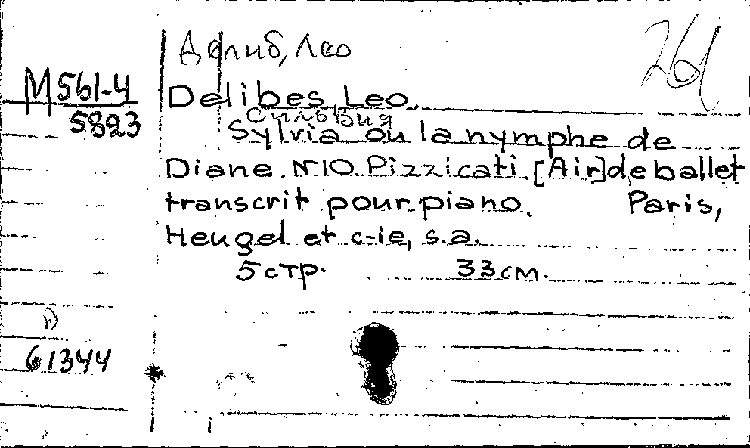 Делиб, Лео
М561-4
5823
Delibes, Leo.
Сильвия
Sylvia ou la nymphe de
Diane. N10. Pizzicati. [Air] de ballet
transcrit pour piano. Paris,
Heugel et c-ie, s.a.
5 стр. 33 см.
61344